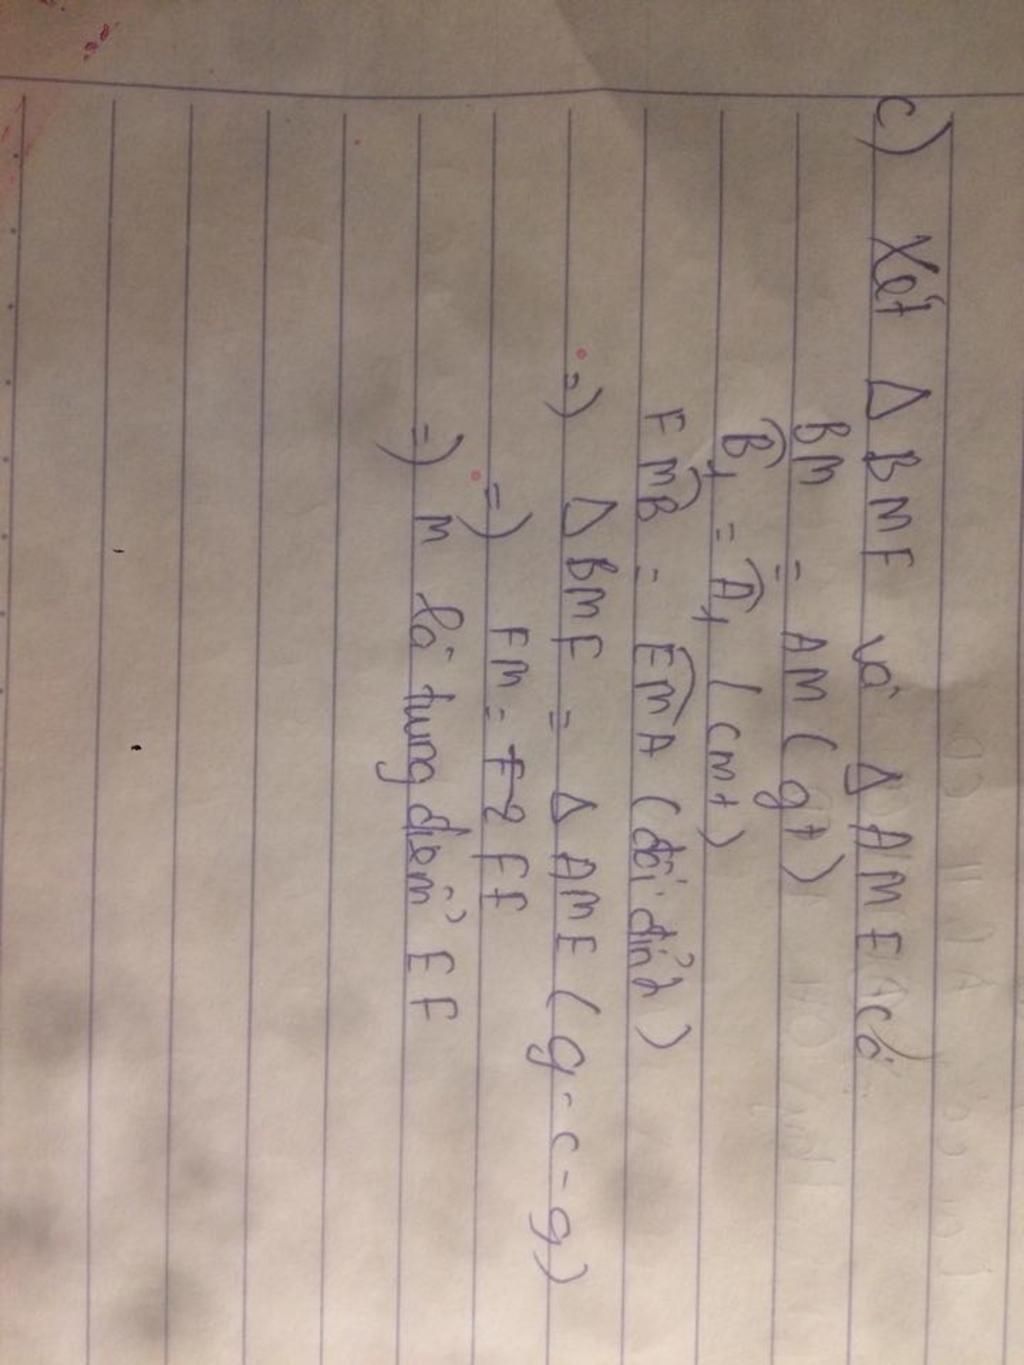 c) Xét Δ BMF và Δ AME có
BM = AM (gt)
B̂₁ = Â₁ (cmt)
FMB = EMA (đối đỉnh)
=) Δ BMF = Δ AME (g-c-g)
=) FM =
=) M là trung điểm EF